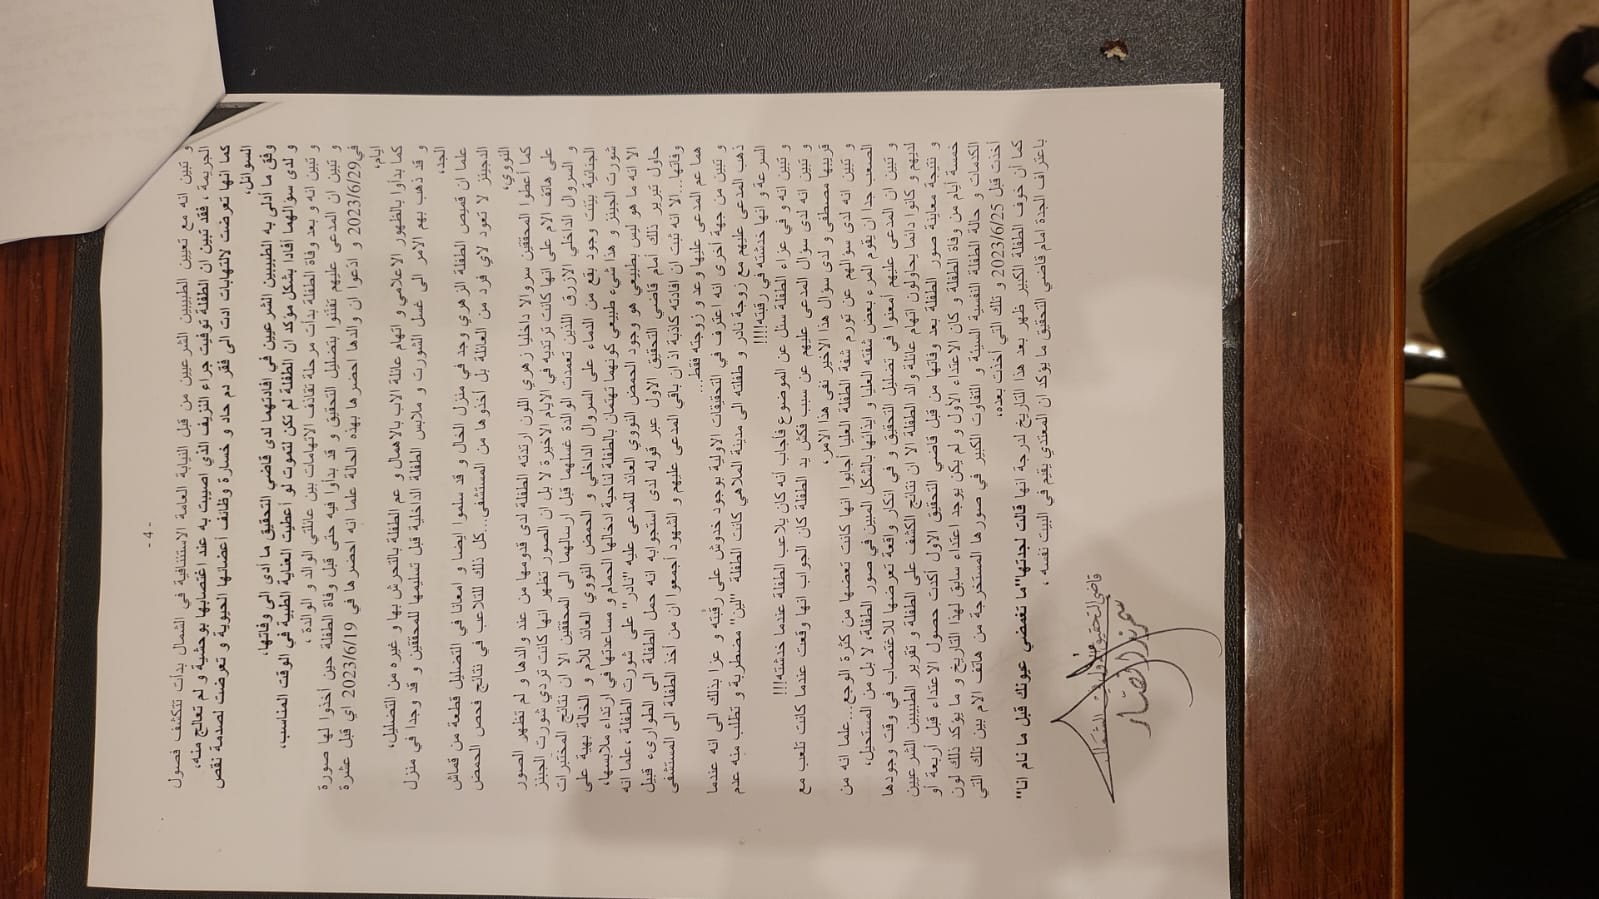 - 4 -
و تبين انه مع تعيين الطبيبين الشرعيين من قبل النيابة العامة الاستئنافية في الشمال بدأت تتكشف فصول
الجريمة ، فقد تبين ان الطفلة توفيت جراء النزيف الذي اصيبت به عند اغتصابها بوحشية و لم تعالج منه،
كما انها تعرضت لالتهابات ادت الى فقر دم حاد و خسارة وظائف أعضائها الحيوية و تعرضت لصدمة نقص
السوائل،
وفق ما أدلى به الطبيبين الشرعيين في افادتهما لدى قاضي التحقيق ما أدى الى وفاتها،
و لدى سؤالهما أفادا بشكل مؤكد ان الطفلة لم تكن لتموت لو أعطيت العناية الطبية في الوقت المناسب،
و تبين انه و بعد وفاة الطفلة بدأت مرحلة تقاذف الاتهامات بين عائلتي الوالد و الوالدة،
و تبين ان المدعى عليهم تفننوا بتضليل التحقيق و قد بدأوا فيه حتى قبل وفاة الطفلة حين أخذوا لها صورة
في 2023/6/29 و ادّعوا ان والدها احضرها بهذه الحالة علما انه احضرها في 2023/6/19 اي قبل عشرة
ايام،
كما بدأوا بالظهور الاعلامي و اتهام عائلة الاب بالاهمال و عم الطفلة بالتحرش بها و غيره من التضليل،
و قد ذهب بهم الامر الى غسل الشورت و ملابس الطفلة الداخلية قبل تسليمها للمحققين و قد وجدا في منزل
الجد،
علما ان قميص الطفلة الزهري وجد في منزل الخال و قد سلموا ايضا و امعانا في التضليل قطعة من قماش
الدجينز لا تعود لاي فرد من العائلة بل أخذوها من المستشفى...كل ذلك للتلاعب في نتائج فحص الحمض
النووي،
كما أعطوا المحققين سروالا داخليا زهري اللون ارتدته الطفلة لدى قدومها من عند والدها و لم تظهر الصور
على هاتف الام على انها كانت ترتديه في الايام الاخيرة لا بل ان الصور تظهر انها كانت تردي شورت الجينز
و السروال الداخلي الازرق اللذين تعمدت الوالدة غسلهما قبل ارسالهما الى المحققين الا ان نتائج المختبرات
الجنائية بيّنت وجود بقع من الدماء على السروال الداخلي و الحمض النووي العائد للأم و الخالة بهية على
شورت الجينز و هذا شيء طبيعي كونهما تهتمان بالطفلة لناحية ادخالها الحمام و مساعدتها في ارتداء ملابسها،
الا انه ما هو ليس بطبيعي هو وجود الحمض النووي العائد للمدعى عليه "نادر" على شورت الطفلة ،علما انه
حاول تبرير ذلك أمام قاضي التحقيق الاول عبر قوله لدى استجوابه انه حمل الطفلة الى الطوارىء قبيل
وفاتها...الا انه ثبت ان افادته كاذبة اذ ان باقي المدعى عليهم و الشهود أجمعوا ان من أخذ الطفلة الى المستشفى
هما عم المدعى عليها وعد و زوجته فقط...
و تبين من جهة أخرى انه اعترف في التحقيقات الاولية بوجود خدوش على رقبته و عزا بذلك الى انه عندما
ذهب المدعى عليهم مع زوجة نادر و طفلته الى مدينة الملاهي كانت الطفلة "لين" مضطربة و تطلب منه عدم
السرعة و انها خدشته في رقبته!!!
و تبين انه و في عزاء الطفلة سئل عن الموضوع فأجاب انه كان يلاعب الطفلة عندما خدشته!!!
و تبين انه لدى سؤال المدعى عليهم عن سبب فكش يد الطفلة كان الجواب انها وقعت عندما كانت تلعب مع
قريبها مصطفى و لدى سؤال هذا الاخير نفى هذا الامر،
و تبين انه لدى سؤالهم عن تورم شفة الطفلة العليا أجابوا انها كانت تعضها من كثرة الوجع...علما انه من
الصعب جدا ان يقوم المرء بعض شفته العليا و ايذائها بالشكل المبين في صور الطفلة، لا بل من المستحيل،
و تبين ان المدعى عليهم أمعنوا في تضليل التحقيق و في انكار واقعة تعرضها للاغتصاب في وقت وجودها
لديهم و كانوا دائما يحاولون اتهام عائلة والد الطفلة الا ان نتائج الكشف على الطفلة و تقرير الطبيبين الشرعيين
و نتيجة معاينة صور الطفلة بعد وفاتها من قبل قاضي التحقيق الاول أكدت حصول الاعتداء قبل أربعة أو
خمسة أيام من وفاة الطفلة و كان الاعتداء الأول و لم يكن يوجد اعتداء سابق لهذا التاريخ و ما يؤكد ذلك لون
الكدمات و حالة الطفلة النفسية السيئة و التفاوت الكبير في صورها المستخرجة من هاتف الام بين تلك التي
أخذت قبل 2023/6/25 و تلك التي أخذت بعده،
كما أن خوف الطفلة الكبير ظهر بعد هذا التاريخ لدرجة انها قالت لجدتها"ما تغمضي عيونك قبل ما نام انا"
باعتراف الجدة امام قاضي التحقيق ما يؤكد ان المعتدي يقيم في البيت نفسه ،
قاضي التحقيق الأول في الشمال
سمرندا نصار